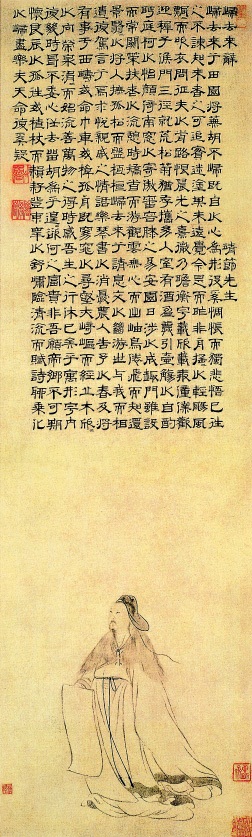 歸去來辭
靖節先生
歸去來兮田園將蕪胡不歸既自以心為形役奚惆悵而獨悲悟已往
之不諫知來者之可追實迷塗其未遠覺今是而昨非舟搖搖以輕颺風
飄飄而吹衣問征夫以前路恨晨光之熹微乃瞻衡宇載欣載奔僮僕歡
迎稚子候門三徑就荒松菊猶存攜幼入室有酒盈樽引壺觴以自酌
眄庭柯以怡顏倚南窗以寄傲審容膝之易安園日涉以成趣門雖設
而常關策扶老以流憩時矯首而遐觀雲無心而出岫鳥倦飛而知還
景翳翳以將入撫孤松而盤桓歸去來兮請息交以絕游世與我而相
遺復駕言兮焉求悅親戚之情話樂琴書以消憂農人告余以春及將
有事于西疇或命巾車或棹孤舟既窈窕以尋壑亦崎嶇而經丘木欣欣
以向榮泉涓涓而始流善萬物之得時感吾生之行休已矣乎寓形宇內
復幾時曷不委心任去留胡為乎遑遑欲何之富貴非吾願帝鄉不可期
懷良辰以孤往或植杖而耘耔登東皋以舒嘯臨清流而賦詩聊乘化
以歸盡樂夫天命復奚疑